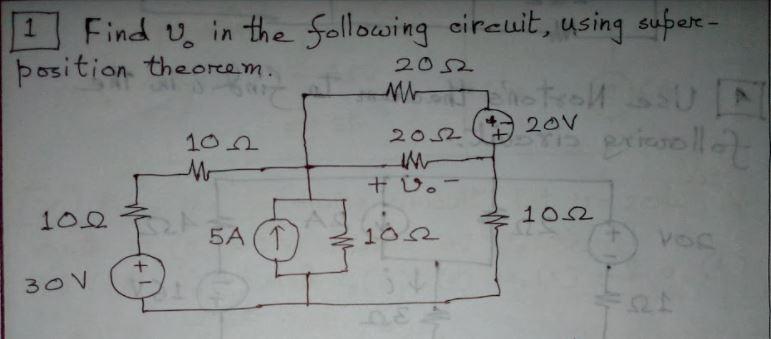 1 Find v₀ in the following circuit, using super-
position theorem.
20Ω
20V
10Ω
20Ω
+ v₀ -
10Ω
5A
10Ω
10Ω
30V